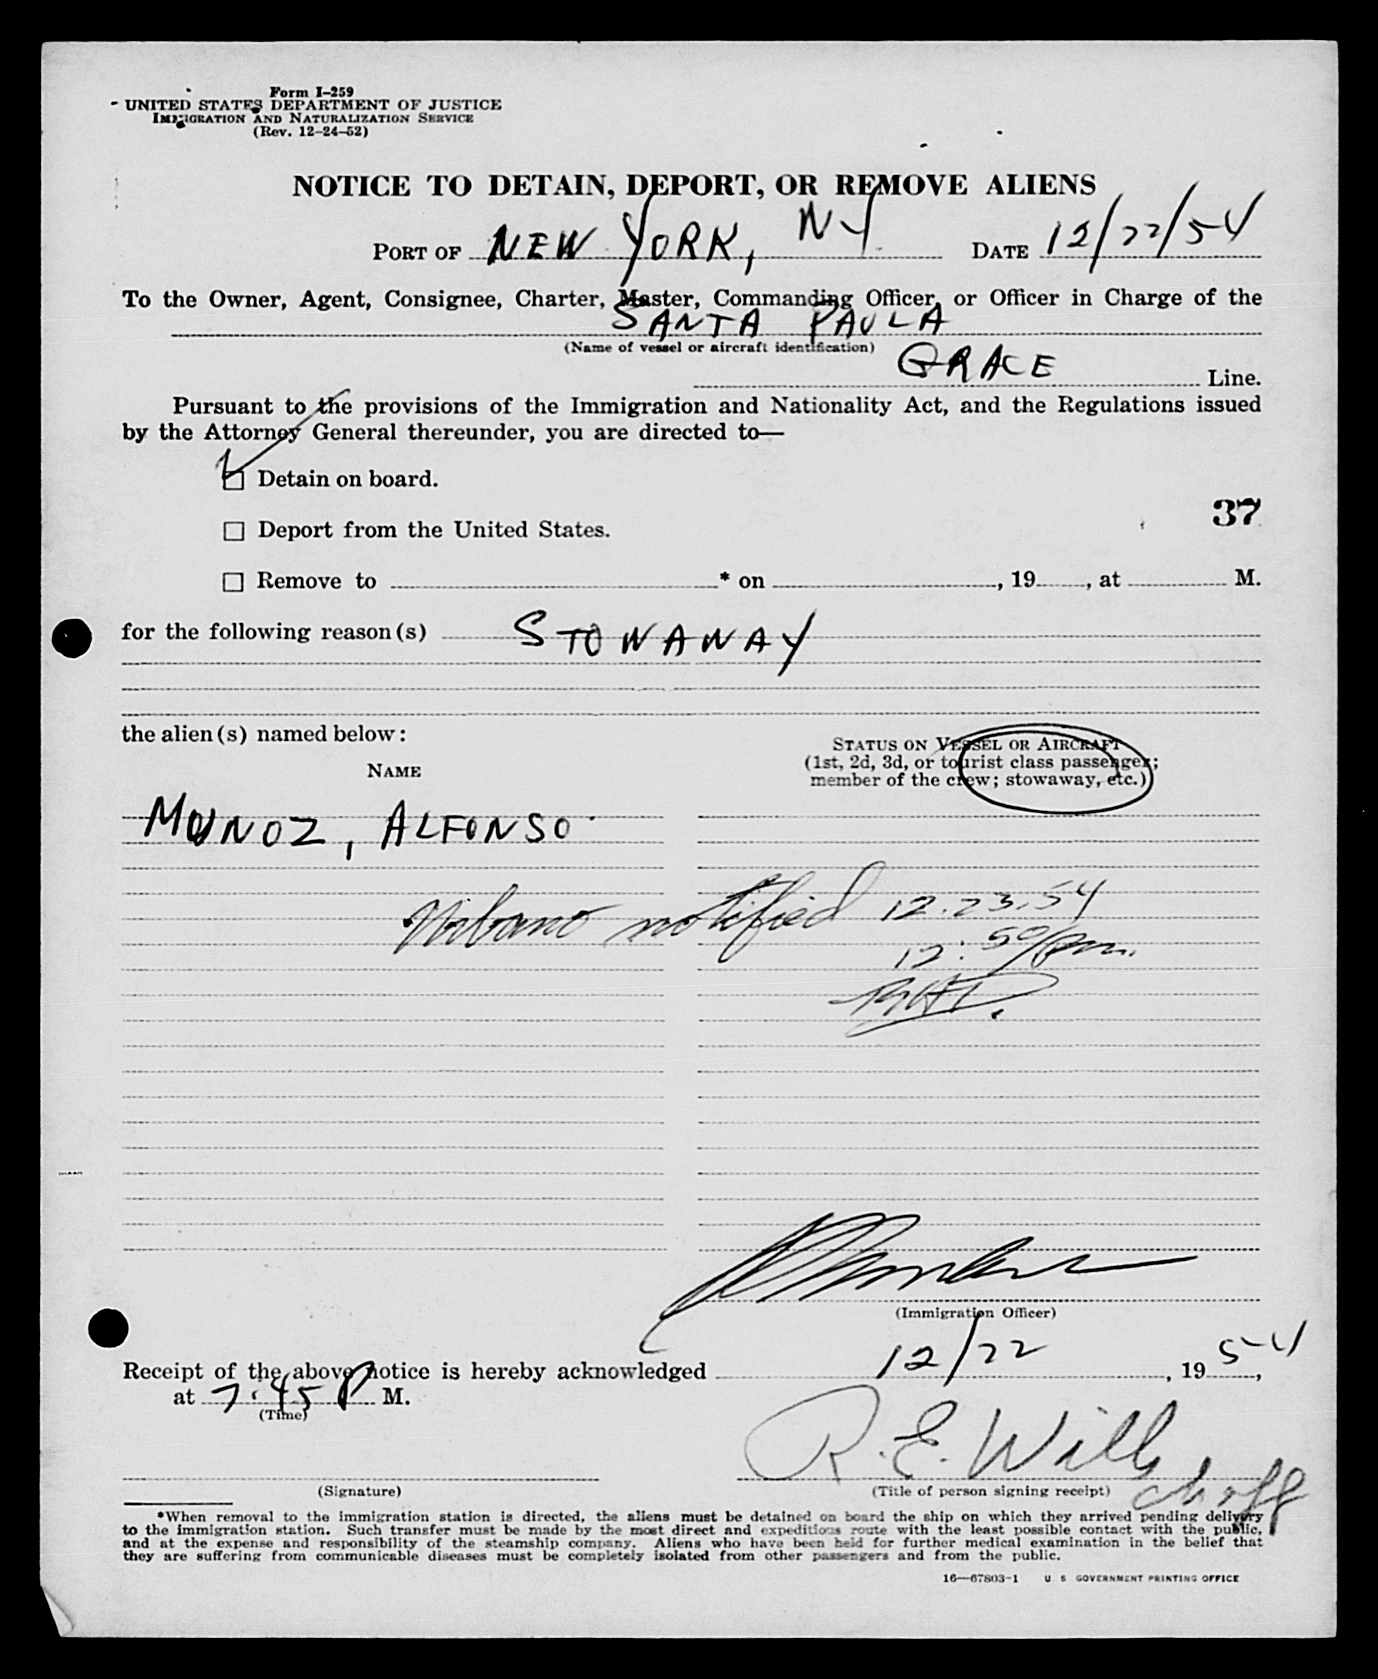 Form I-259
UNITED STATES DEPARTMENT OF JUSTICE
IMMIGRATION AND NATURALIZATION SERVICE
(Rev. 12-24-52)
NOTICE TO DETAIN, DEPORT, OR REMOVE ALIENS
PORT OF NEW YORK, NY DATE 12/22/54
To the Owner, Agent, Consignee, Charter, Master, Commanding Officer, or Officer in Charge of the
SANTA PAULA
(Name of vessel or aircraft identification)
GRACE Line.
Pursuant to the provisions of the Immigration and Nationality Act, and the Regulations issued
by the Attorney General thereunder, you are directed to—
Detain on board.
37
Deport from the United States.
Remove to * on , 19 , at M.
for the following reason(s) STOWAWAY
the alien(s) named below:
STATUS ON VESSEL OR AIRCRAFT
(1st, 2d, 3d, or tourist class passenger;
member of the crew; stowaway, etc.)
NAME
MUNOZ, ALFONSO
notified 12.23.54
12:50 pm.
(Immigration Officer)
Receipt of the above notice is hereby acknowledged 12/22, 1954,
at 7:45 P M.
(Time)
R. E. Wills
(Signature)
(Title of person signing receipt)
*When removal to the immigration station is directed, the aliens must be detained on board the ship on which they arrived pending delivery
to the immigration station. Such transfer must be made by the most direct and expeditious route with the least possible contact with the public,
and at the expense and responsibility of the steamship company. Aliens who have been held for further medical examination in the belief that
they are suffering from communicable diseases must be completely isolated from other passengers and from the public.
16—67803-1 U S GOVERNMENT PRINTING OFFICE